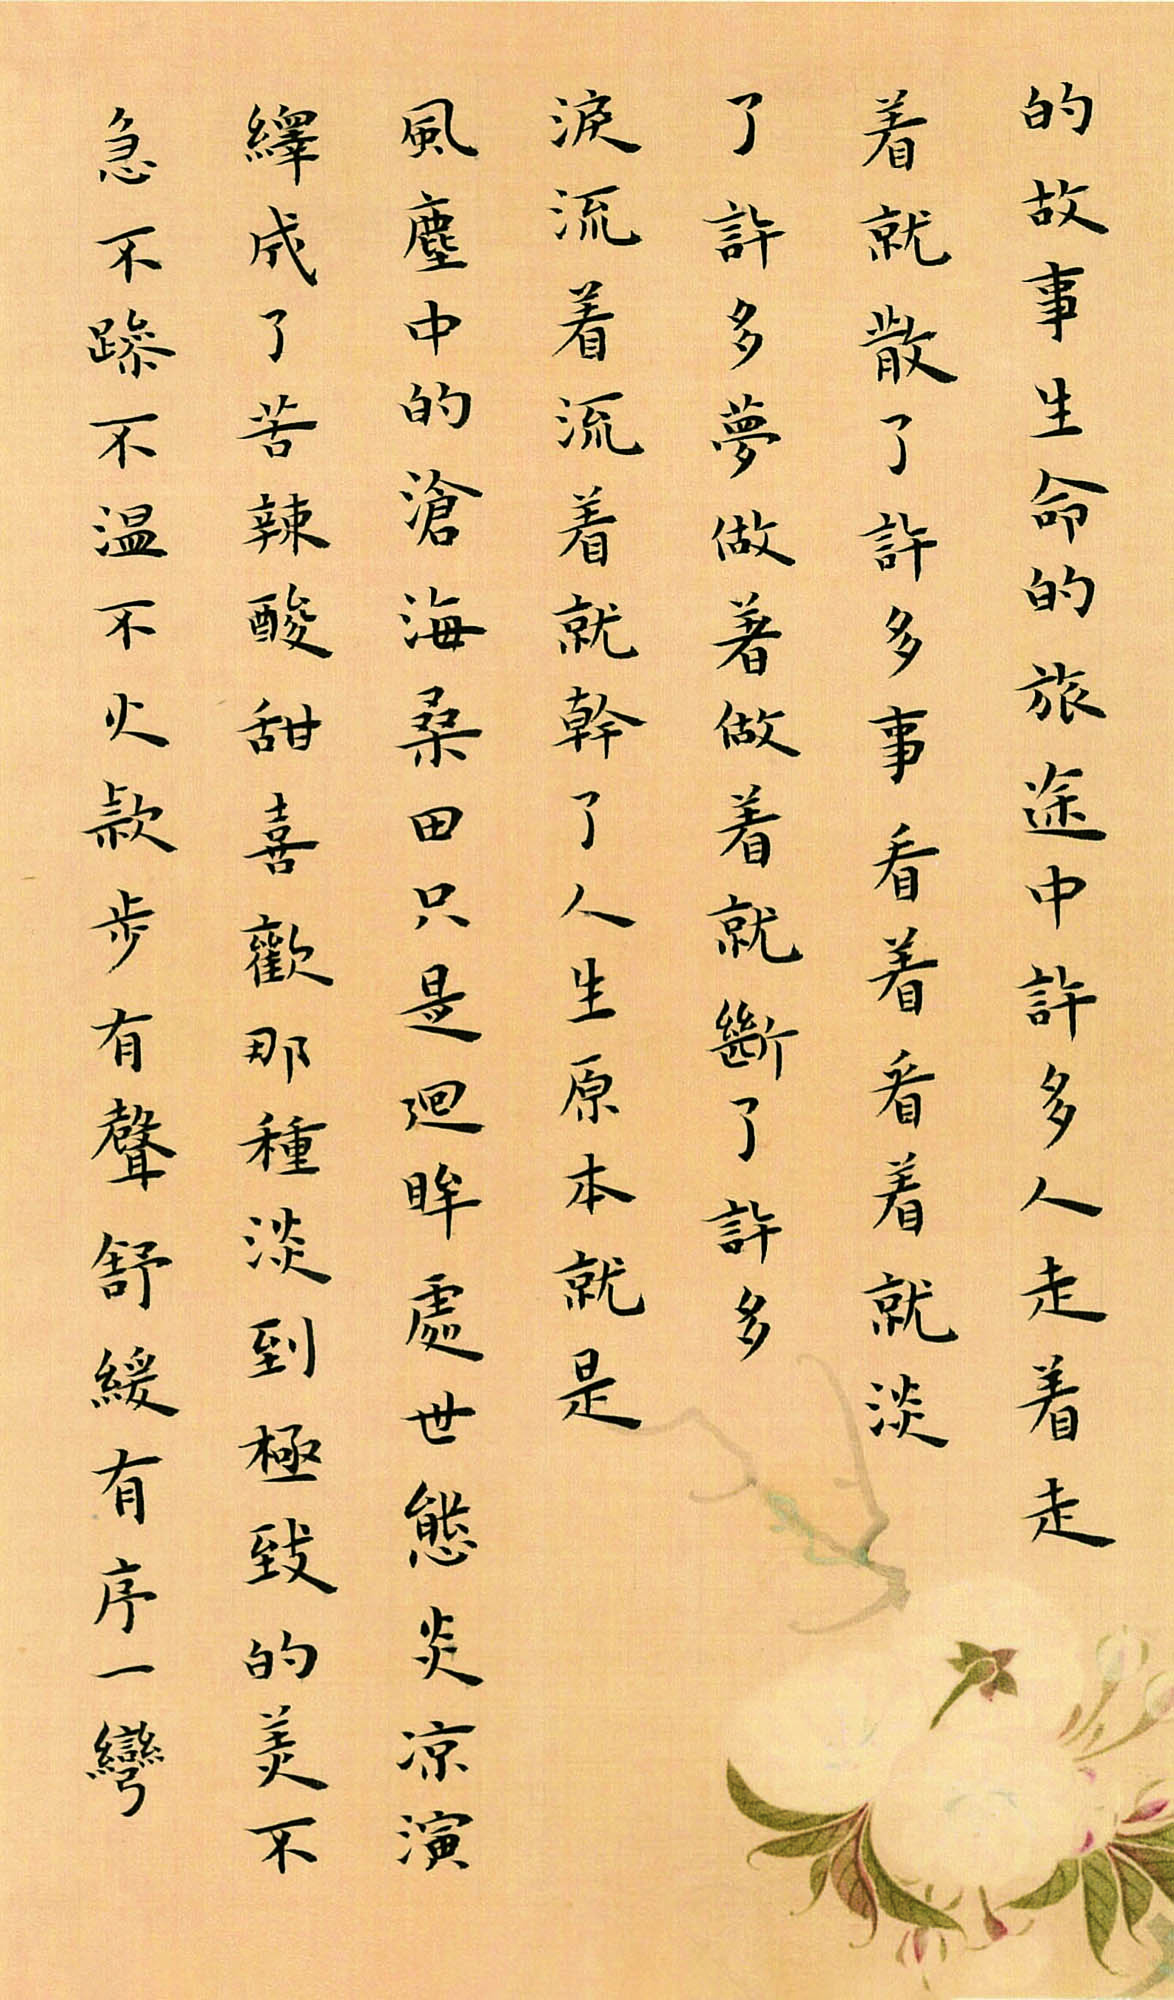 的故事生命的旅途中許多人走着走
着就散了許多事看着看着就淡
了許多夢做著做着就斷了許多
淚流着流着就幹了人生原本就是
風塵中的滄海桑田只是迴眸處世態炎凉演
繹成了苦辣酸甜喜歡那種淡到極致的美不
急不躁不温不火款步有聲舒緩有序一彎